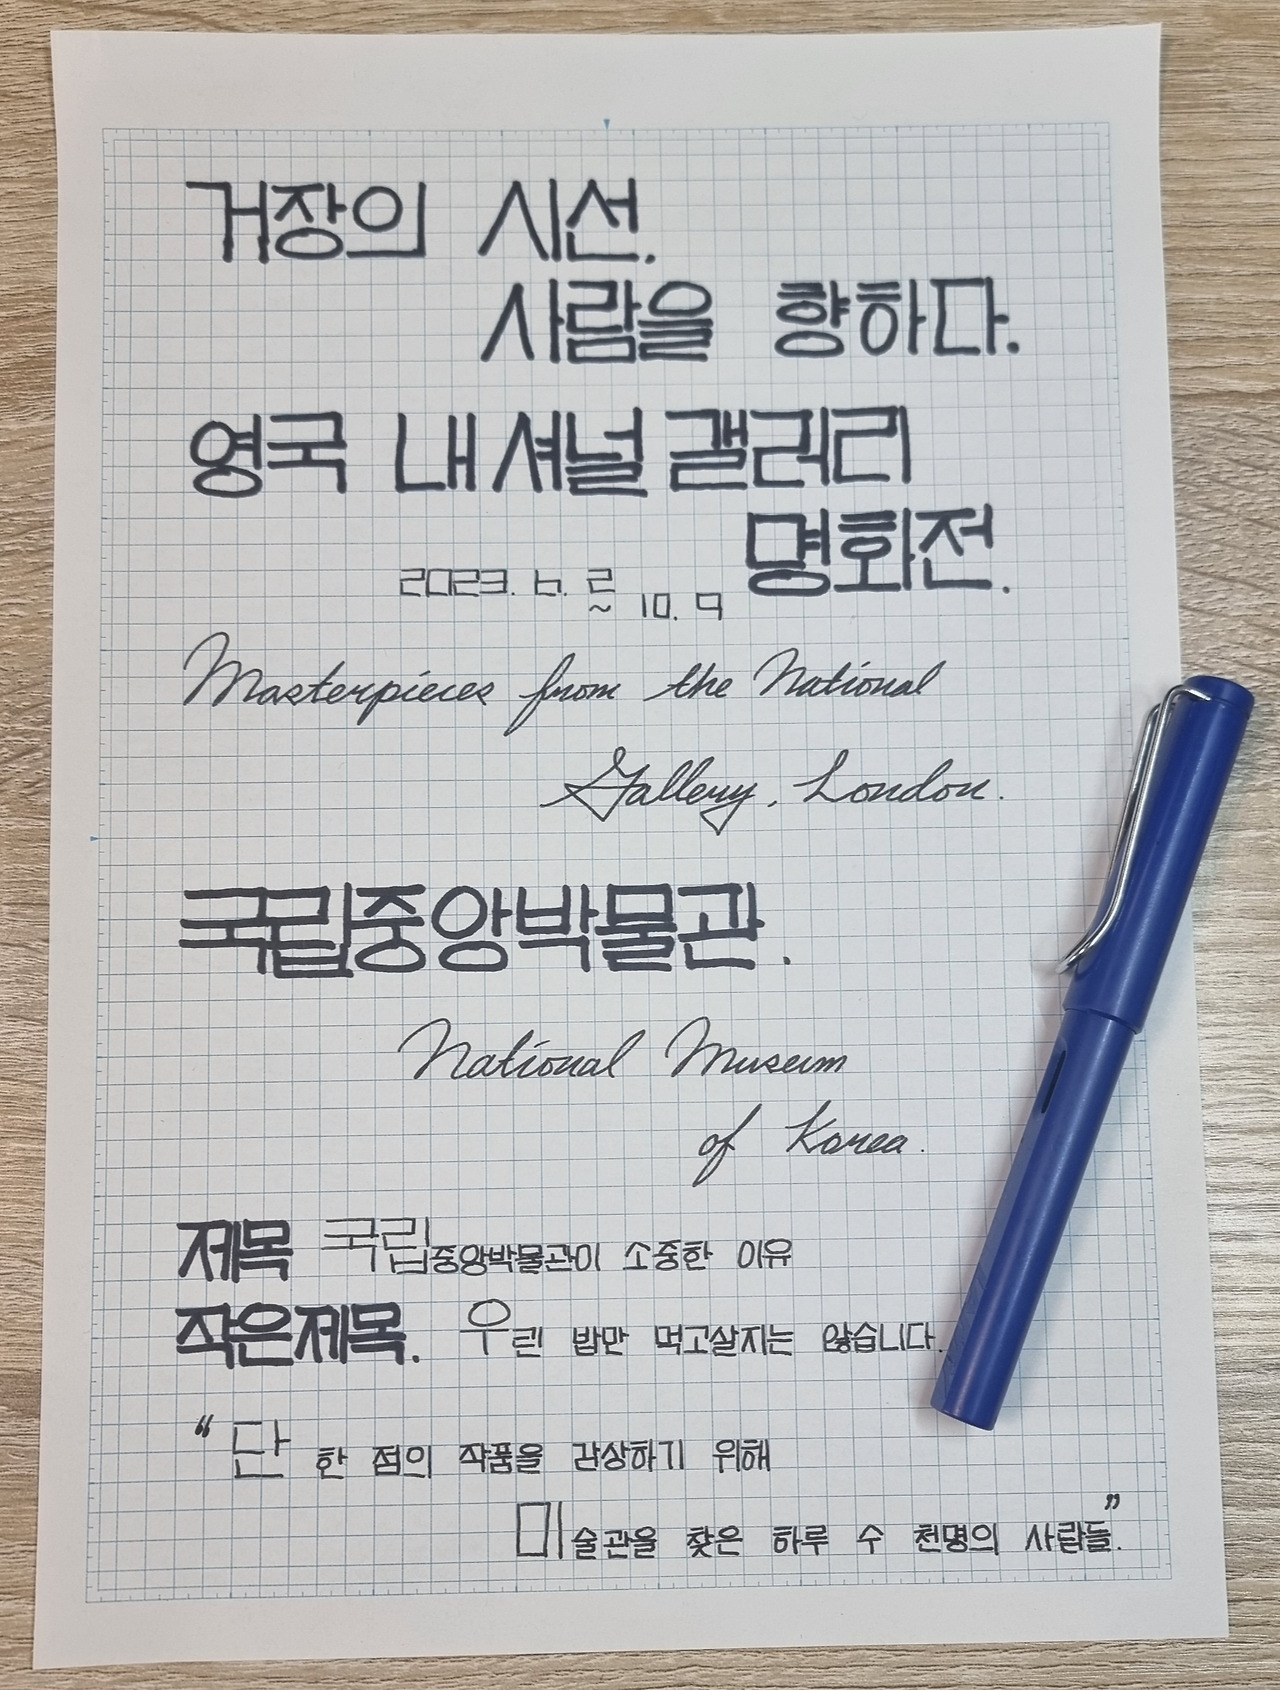 거장의 시선.
사람을 향하다.
영국 내셔널 갤러리
명화전.
2023. 6. 2 ~ 10. 9
Masterpieces from the National
Gallery, London.
국립중앙박물관.
National Museum
of Korea.
제목 국립중앙박물관이 소중한 이유
작은제목. 우린 밥만 먹고살지는 않습니다.
“단 한 점의 작품을 감상하기 위해
미술관을 찾은 하루 수 천명의 사람들.”